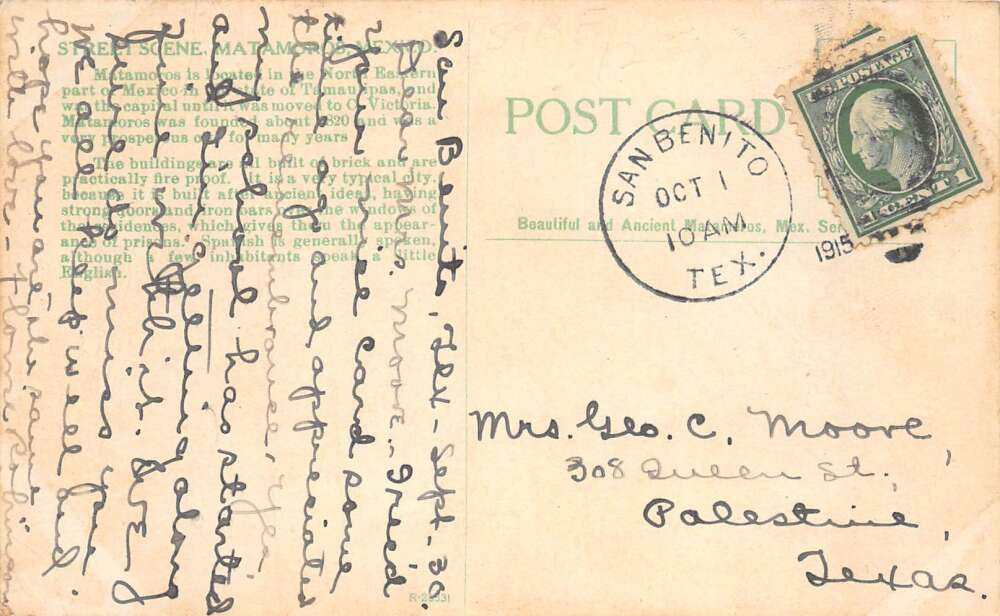 STREET SCENE, MATAMOROS, MEXICO.
Matamoros is located in the North Eastern
part of Mexico in the state of Tamaulipas, and
was the capital until it was moved to C. Victoria.
Matamoros was founded about 1820 and was a
very prosperous city for many years
The buildings are all built of brick and are
practically fire proof. It is a very typical city,
because it is built after ancient ideas, having
strong doors and iron bars the windows of
the residences, which gives them the appear-
ance of prisons. Spanish is generally spoken,
although a few inhabitants speak a little
English.
San Benito, Tex - Sept. 30.
Dear Mrs. Moore - I rec'd
your nice card some
time ago and appreciated
the remembrance, Yes
my school has started
and I'm getting along
fine in it. We
surely do miss you
We all keep well and
hope you are the same
with love - Robinson
R-29331
POST CARD
Beautiful and Ancient Matamoros, Mex. Ser
SAN BENITO
OCT 1
10 AM
TEX.
1915
POSTAGE
1 CENT 1
Mrs. Geo. C. Moore,
308 Queen St.,
Palestine,
Texas.